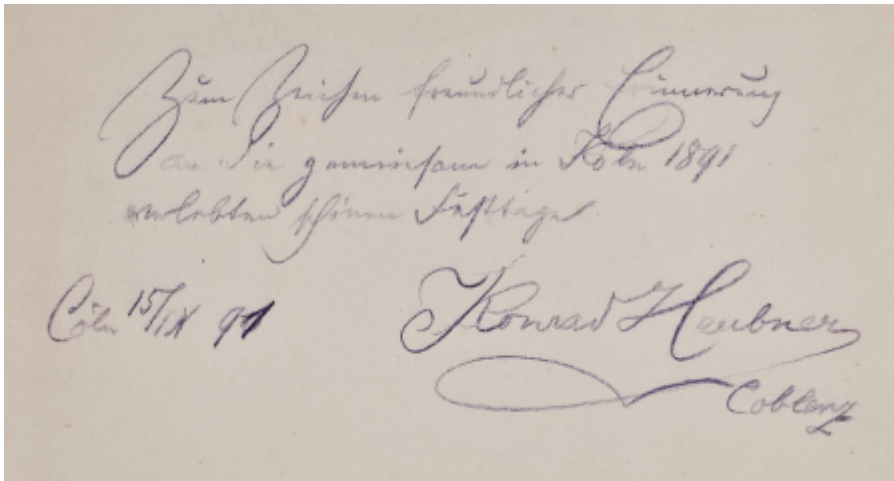 Zum Zeichen freundlicher Erinnerung
an die gemeinsam in Köln 1891
verlebten schönen Festtage.
Cöln 15/IX 91
Konrad Heubner
Coblenz